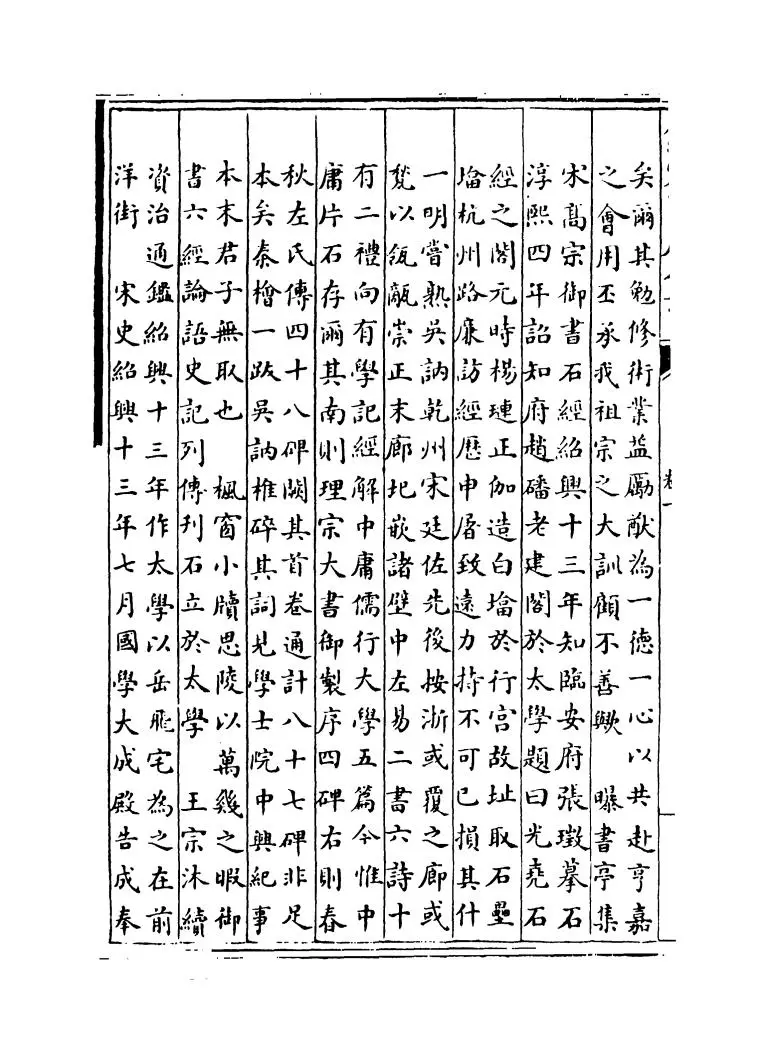 矣爾其勉修術業益勵猷為一德一心以共赴亨嘉
之會用丕承我祖宗之大訓顧不善歟　曝書亭集
宋高宗御書石經紹興十三年知臨安府張澂摹石
淳熙四年詔知府趙磻老建閣於太學題曰光堯石
經之閣元時楊璉正伽造白墖於行宮故址取石壘
墖杭州路廉訪經歷申屠致遠力持不可已損其什
一明嘗熟吳訥乾州宋廷佐先後按浙或覆之廊或
甃以瓴甋崇正末廊圯嵌諸壁中左易二書六詩十
有二禮向有學記經解中庸儒行大學五篇今惟中
庸片石存爾其南則理宗大書御製序四碑右則春
秋左氏傳四十八碑闕其首卷通計八十七碑非足
本矣秦檜一跋吳訥椎碎其詞見學士院中興紀事
本末君子無取也　楓窗小牘思陵以萬幾之暇御
書六經論語史記列傳刋石立於太學　王宗沐續
資治通鑑紹興十三年作太學以岳飛宅為之在前
洋街　宋史紹興十三年七月國學大成殿告成奉
卷一